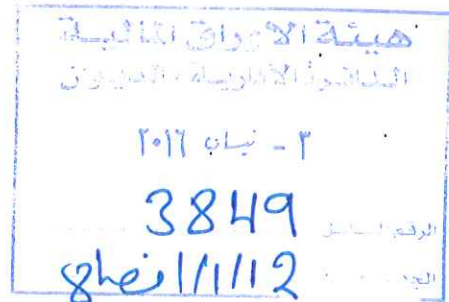 هيئة الاوراق المالية
الدائرة الادارية / الديوان
٣ - نيسان ٢٠١٦
الرقم المتسلسل 3849
12/1/1/